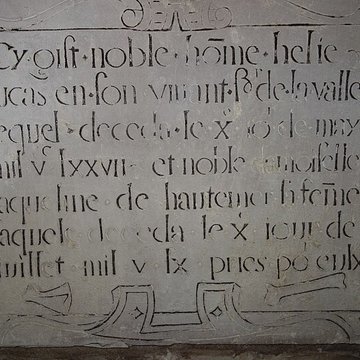 Cy · gist · noble · hōme · helie
ucas en · son vivant · sr de · lavalle
equel · deceda · le xe ior de may
mil vc lxxvii · et noble damoiselle
aqueline · de hautemer sa feme
aquele deceda · le x jour de
juillet · mil v lx pries po eulx